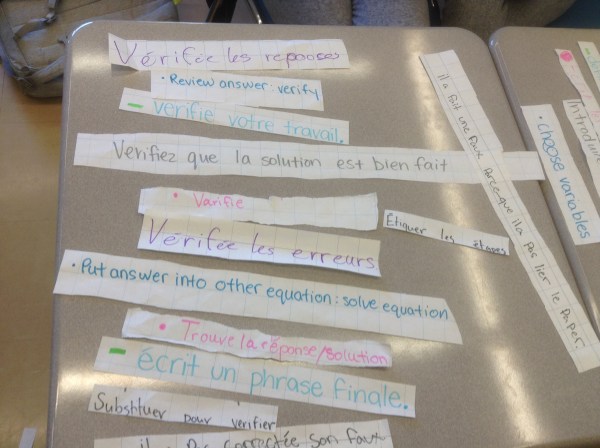 Vérifée les reponses
• Review answer: verify
- verifie votre travail.
Verifiez que la solution est bien fait
• Varifie
Vérifée les erreurs
Étiquer les étapes
• Put answer into other equation: solve equation
• Trouve la réponse/solution
- écrit un phrase finale.
Substituer pour verifier
correctée son faux
il a fait une faux parce-que il a pas lier le paper.
• choose variables
Introduire